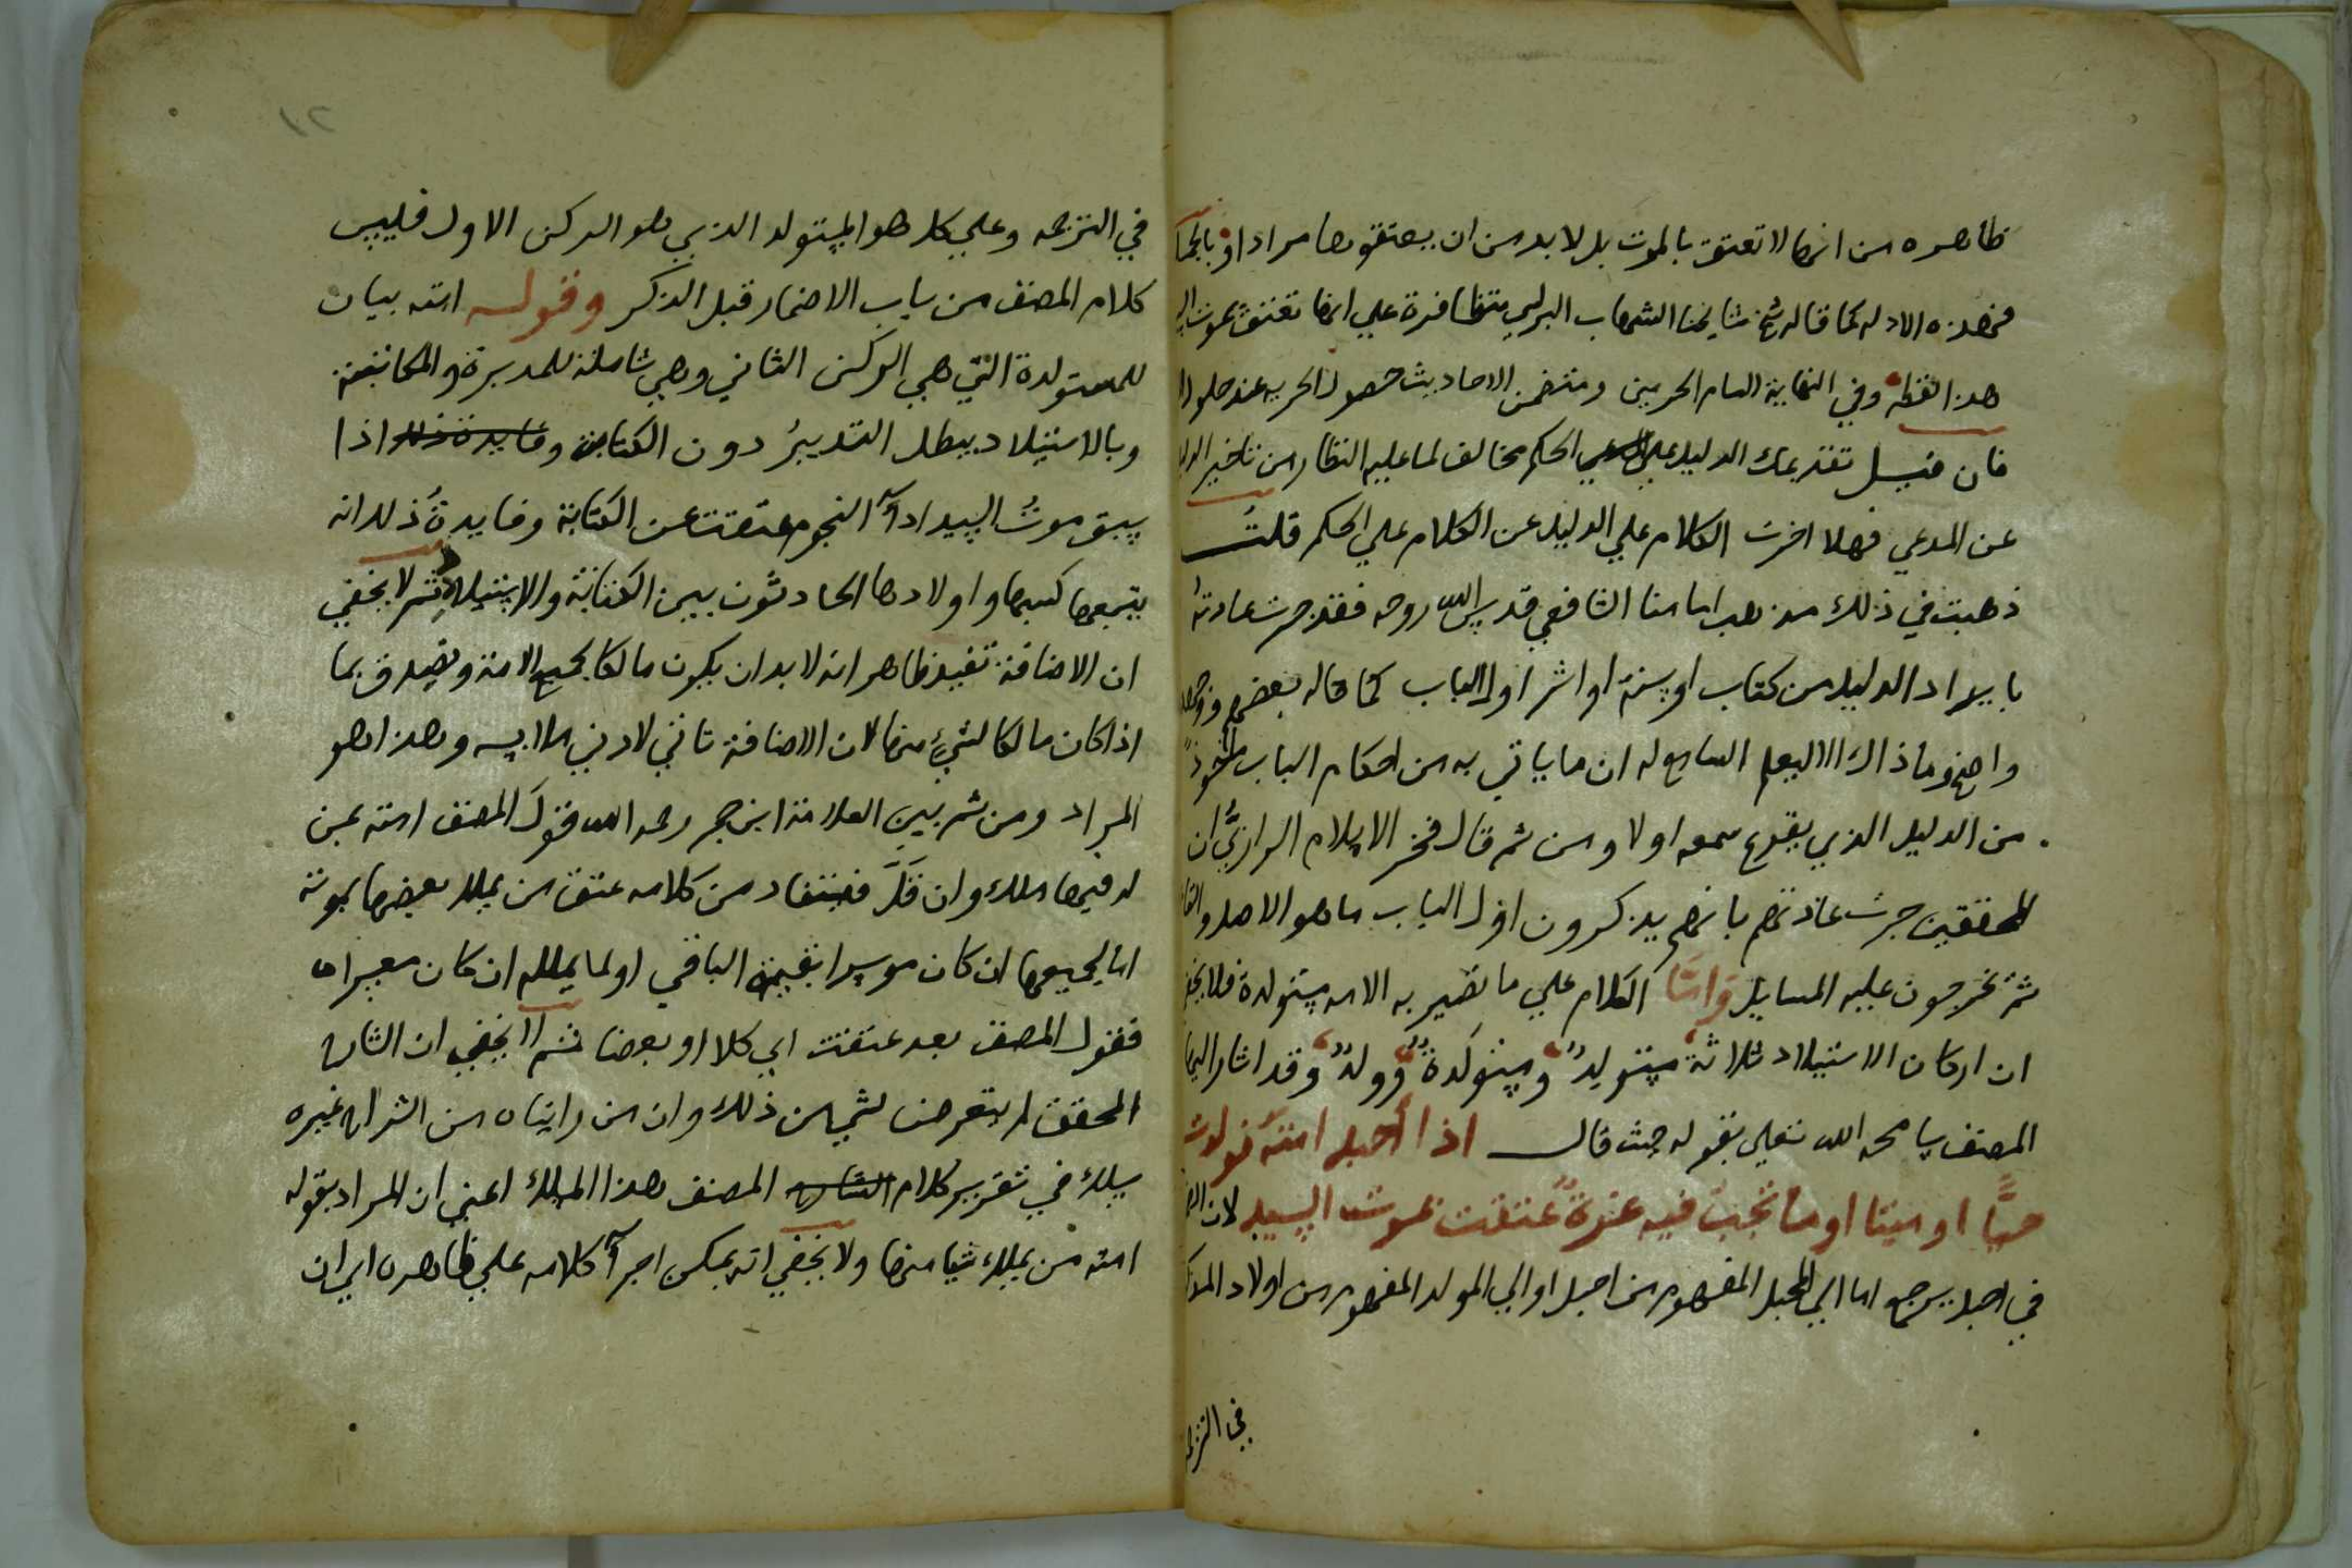 ظاهره من انها لا تعتق بالموت بل لا بد من ان يعتقوها مرادا و بالجملة
فهذه الادله كما قاله شيخ مشايخنا الشهاب البرلسي متظافرة علي انها تعتق بموت
هذا لفظه وفي النهاية لامام الحرمين ومتضمن الاحاديث حصول الحريه عند حلول
فان قيل تقديمك الدليل علي الحكم مخالف لما عليه النظار من تاخير
عن المدعي فهلا اخرت الكلام علي الدليل عن الكلام علي الحكم قلتُ
ذهبت في ذلك مذهب امامنا الشافعي قدس الله روحه فقد جرت عادتهُ
بايراد الدليل من كتاب او سنة او اثر اول الباب كما قاله بعضهم
واضح وما ذاك الا ليعلم السامع له ان ما ياتي به من احكام الباب ماخوذ
من الدليل الذي يقرع سمعه اولا ومن ثم قال فخر الاسلام الرازيُّ ان
المحققين جرت عادتهم بانهم يذكرون اول الباب ما هو الاصل
ثم يخرجون عليه المسايل واما الكلام علي ما تصير به الامه مستولدة فلا
ان اركان الاستيلاد ثلاثة مستولِدٌ ومستولَدةٌ وولدٌ وقد اشار اليها
المصنف سامحه الله تعلي بقوله حيث قال اذا أحبل امته فولدت
حيًّا او ميتا او ما تجب فيه غرةٌ عتقت بموت السيد لان
في احبل يرجع اما الي المحبل المفهوم من احبل او الي المولد المفهوم من اولاد
في الترجمه
١٢
في الترجمه وعلي كل هو المستولد الذي هو الركن الاول فليس
كلام المصنف من باب الاضمار قبل الذكر وقوله امته بيان
للمستولدة التي هي الركن الثاني وهي شاملة للمدبرة والمكاتبة
وبالاستيلاد يبطل التدبيرُ دون الكتابة وفايدة ذلك اذا
سبق موتُ السيد ادآ النجوم عتقت عن الكتابة وفايدةُ ذلك انه
يتبعها كسبها واولادها الحادثون بين الكتابة والاستيلاد ثم لا يخفي
ان الاضافة تفيد ظاهرا انه لا بد ان يكون مالكا لجميع الامة ويصدق بما
اذا كان مالكا لشيٍ منها لان الاضافة تاتي لادني ملابسه وهذا هو
المراد ومن ثم بين العلامة ابن حجر رحمه الله قول المصنف امته بمن
له فيها ملك وان قلَّ فيستفاد من كلامه عتق من يملك بعضها بموته
اما لجميعها ان كان موسرا بقيمة الباقي او لما يملكه ان كان معسرا
فقول المصنف بعد عتقت اي كلا او بعضا ثم لا يخفي ان الشارح
المحقق لم يتعرض لشي من ذلك وان من رايناه من الشراح غيره
سلك في تقرير كلام الشارح المصنف هذا المسلك اعني ان المراد بقوله
امته من يملك شيا منها ولا يخفي انه يمكن اجرآ كلامه علي ظاهره اي ان